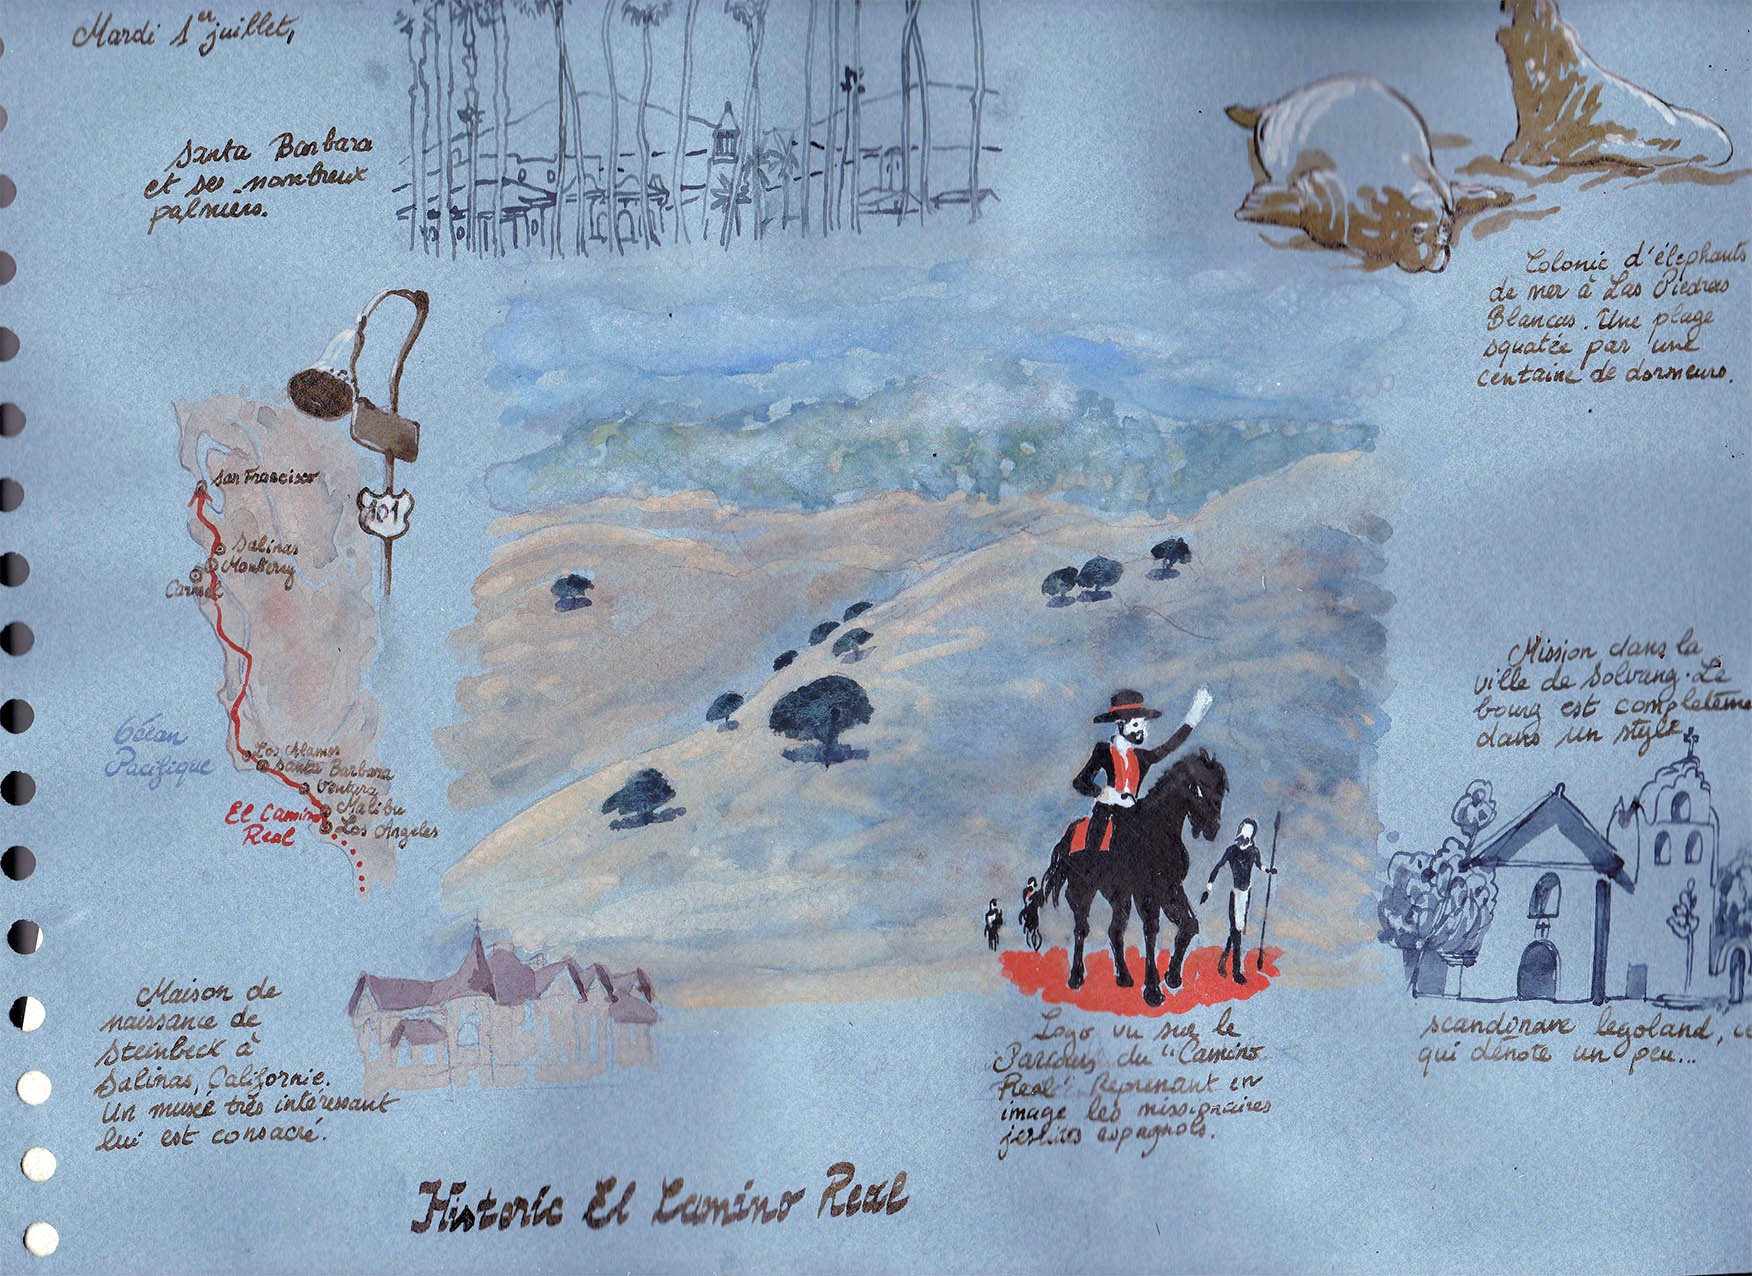 Mardi 1er juillet,
Santa Barbara
et ses nombreux
palmiers.
Colonie d'éléphants
de mer à Las Piedras
Blancas. Une plage
squatée par une
centaine de dormeurs.
101
San Francisco
Salinas
Monterey
Carmel
Océan
Pacifique
Los Alamos
Santa Barbara
Ventura
Malibu
Los Angeles
El Camino
Real
Mission dans la
ville de Solvang. Le
bourg est complèteme
dans un style
scandinave legoland, ce
qui dénote un peu...
Maison de
naissance de
Steinbeck à
Salinas, Californie.
Un musée très intéressant
lui est consacré.
Logo vu sur le
Parcours du "Camino
Real". Reprenant en
image les missionaires
jésuites espagnols.
Historic El Camino Real